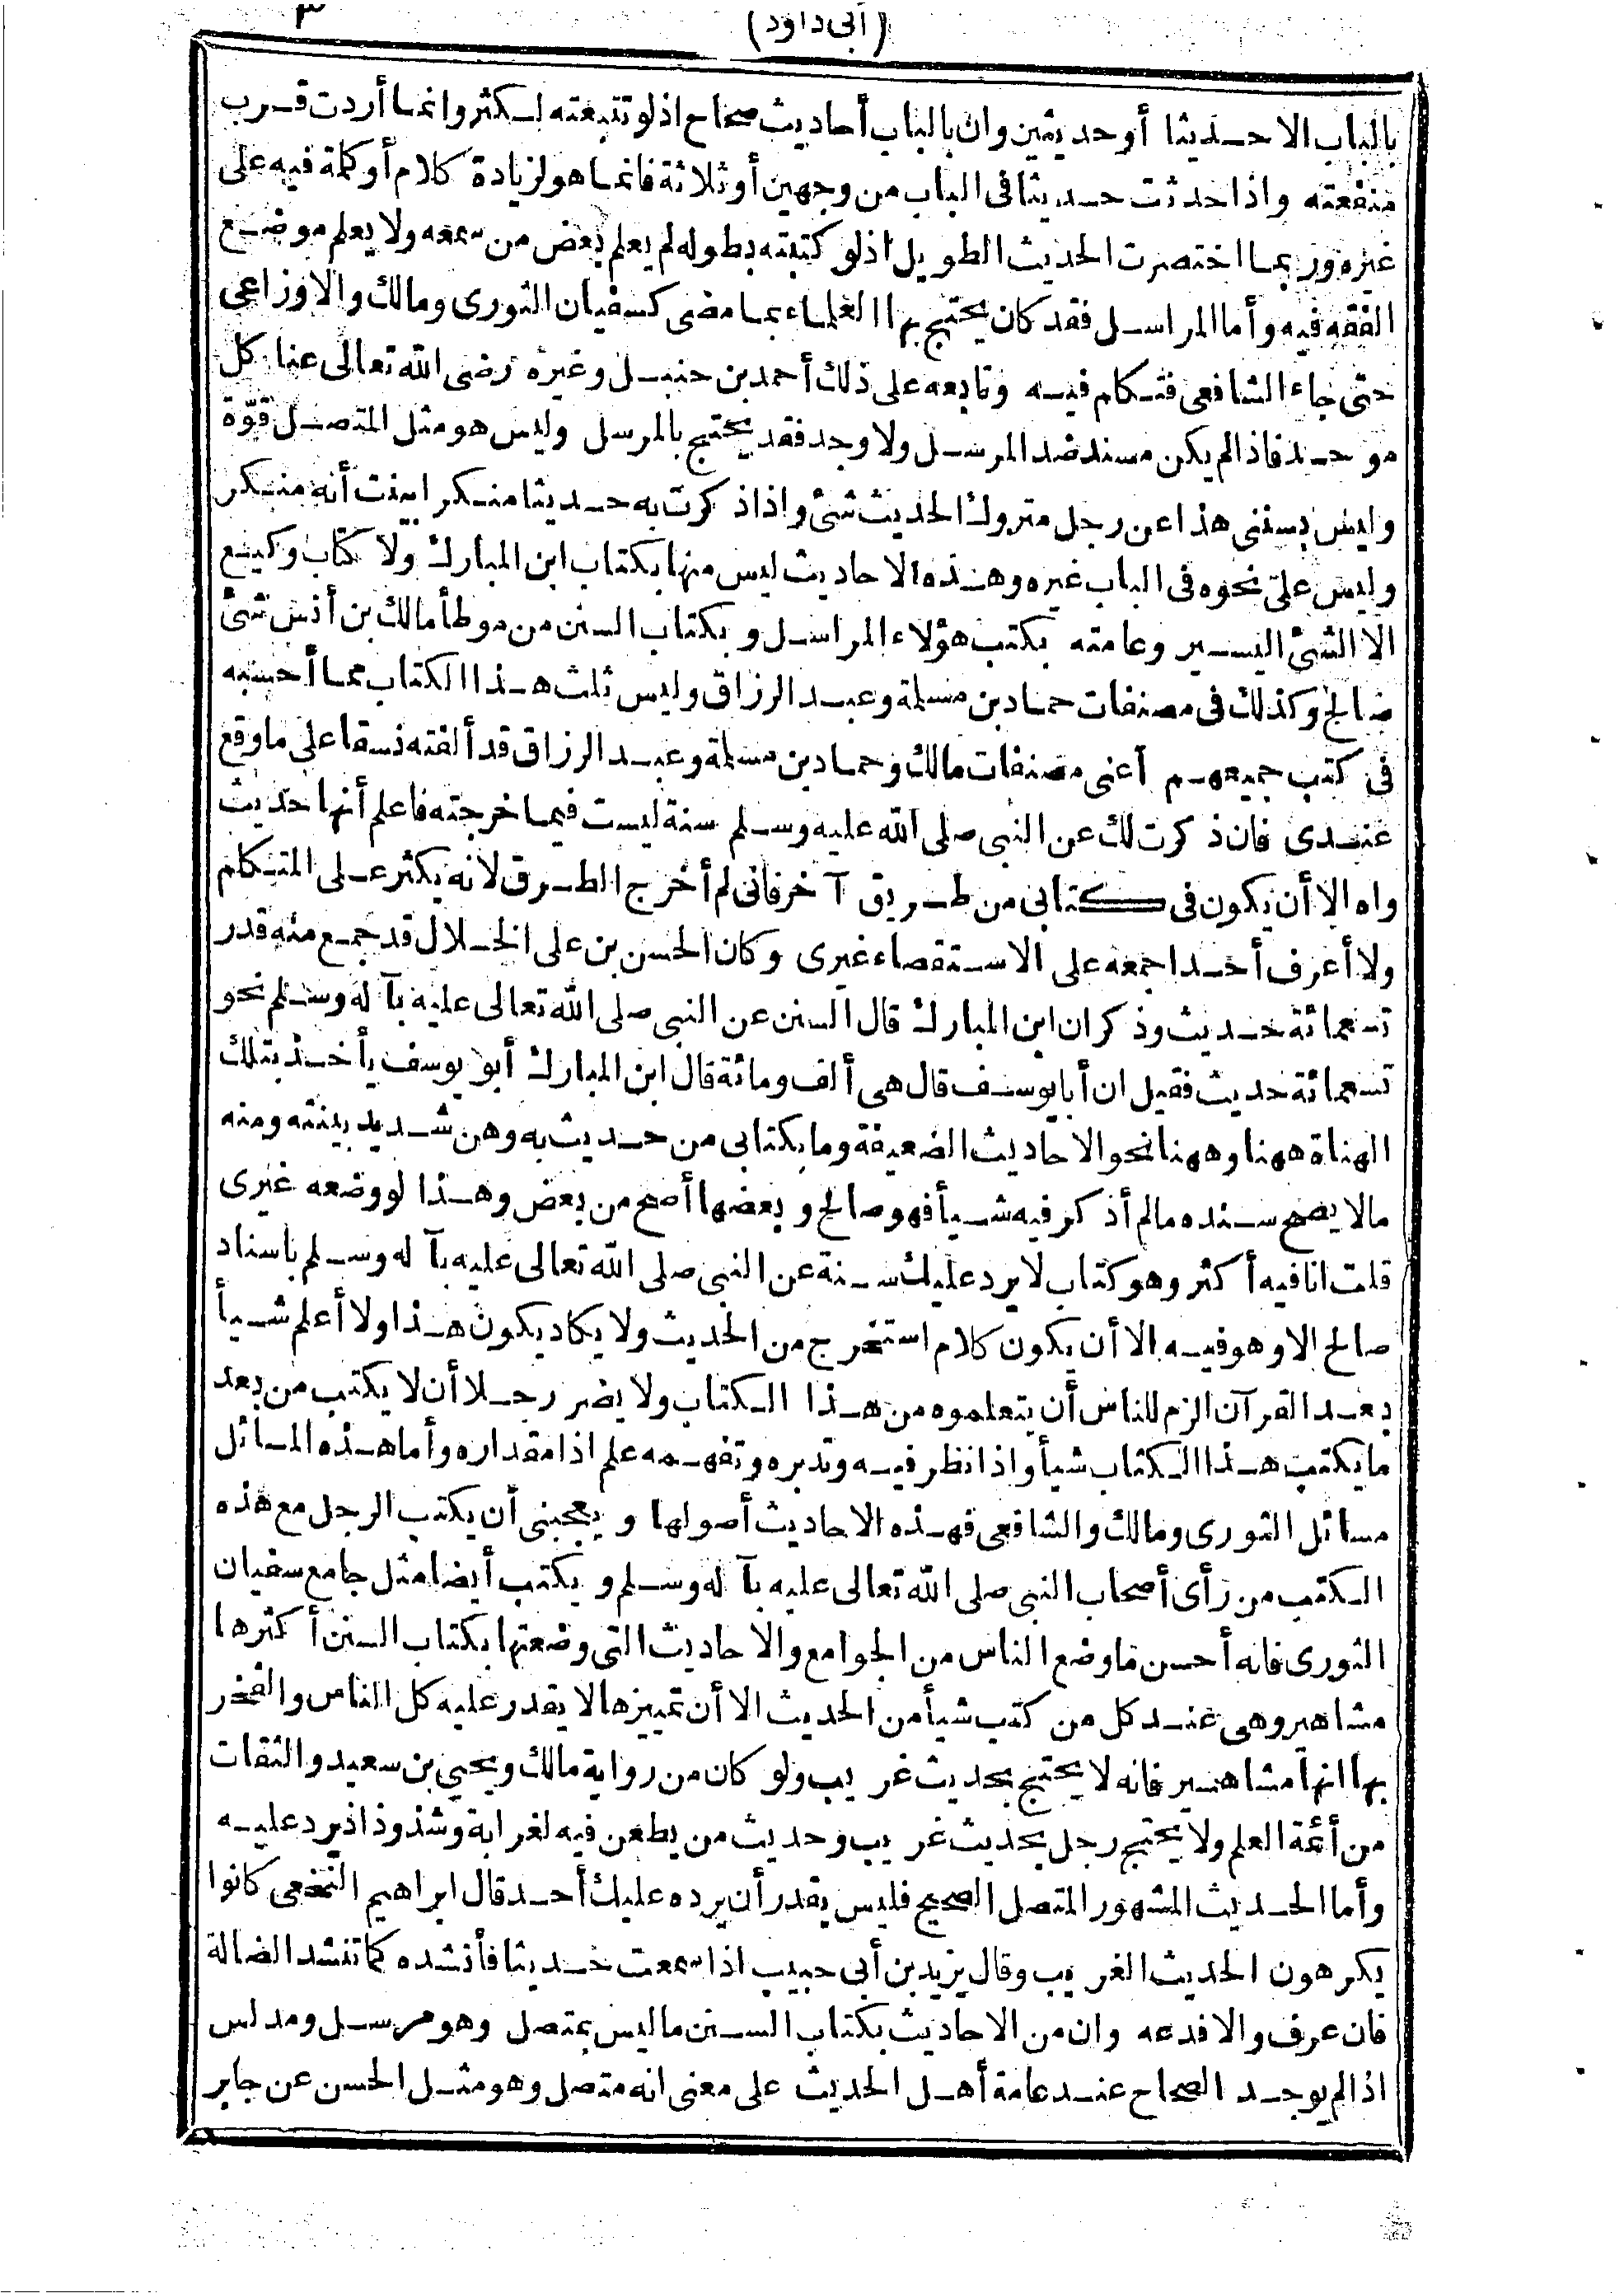 ٣
(أبى داود)
بالباب الاحديثا أوحديثين وان بالباب أحاديث صحاح اذلو تتبعته لكثر وانما أردت قرب
منفعته واذا حدثت حديثا فى الباب من وجهين أوثلاثة فانما هو لزيادة كلام أو كلمة فيه على
غيره وربما اختصرت الحديث الطويل اذلو كتبته بطوله لم يعلم بعض من سمعه ولا يعلم موضع
الفقه فيه وأما المراسل فقد كان يحتج بها العلماء بما مضى كسفيان الثورى ومالك والاوزاعى
حتى جاء الشافعى فتكام فيه وتابعه على ذلك أحمد بن حنبل وغيره رضى الله تعالى عنا كل
موحد فاذا لم يكن مسند ضد المرسل ولا وجد فقد يحتج بالمرسل وليس هو مثل المتصل قوّة
وليس بسننى هذا عن رجل متروك الحديث شئ واذا ذكرت به حديثا منكرا بينت أنه منكر
وليس علىّ نحوه فى الباب غيره وهذه الاحاديث ليس منها بكتاب ابن المبارك ولا كتاب وكيع
الا الشئ اليسير وعامته بكتب هؤلاء المراسل و بكتاب السنن من موطأ مالك بن أنس شئ
صالح وكذلك فى مصنفات حماد بن مسلمة وعبد الرزاق وليس ثلث هذا الكتاب مما أحسبه
فى كتب جميعهم أعنى مصنفات مالك وحماد بن مسلمة وعبد الرزاق قد ألفته نسقا على ما وقع
عندى فان ذكرت لك عن النبى صلى الله عليه وسلم سنة ليست فيما خرجته فاعلم أنها حديث
واه الا أن يكون فى كتابى من طريق آخر فانى لم أخرج الطرق لانه يكثر على المتكلم
ولا أعرف أحدا جمعه على الاستقصاء غيرى وكان الحسن بن على الخلال قد جمع منه قدر
تسعمائة حديث وذكر ان ابن المبارك قال السنن عن النبى صلى الله تعالى عليه بآ له وسلم نحو
تسعمائة حديث فقيل ان أبا يوسف قال هى ألف ومائة قال ابن المبارك أبو يوسف يأخذ بتلك
الهناة ههنا وههنا نحو الاحاديث الضعيفة وما بكتابى من حديث به وهن شديد بينته ومنه
مالا يصح سنده مالم أذكر فيه شيأ فهو صالح و بعضها أصح من بعض وهذا لو وضعه غيرى
قلت انا فيه أكثر وهو كتاب لا يرد عليك سنة عن النبى صلى الله تعالى عليه بآ له وسلم باسناد
صالح الا وهو فيه الا أن يكون كلام استخرج من الحديث ولا يكاد يكون هذا ولا أعلم شيأ
بعد القرآن الزم للناس أن يتعلموه من هذا الكتاب ولا يضر رجلا أن لا يكتب من بعد
ما يكتب هذا الكتاب شيأ واذا نظر فيه وتدبره وتفهمه علم اذا مقداره وأما هذه المسائل
مسائل الثورى ومالك والشافعى فهذه الاحاديث أصولها و يعجبنى أن يكتب الرجل مع هذه
الكتب من رأى أصحاب النبى صلى الله تعالى عليه بآ له وسلم و يكتب أيضا مثل جامع سفيان
الثورى فانه أحسن ما وضع الناس من الجوامع والاحاديث التى وضعتها بكتاب السنن أكثرها
مشاهير وهى عند كل من كتب شيأ من الحديث الا أن تمييزها لا يقدر عليه كل الناس والفخر
بها انها مشاهير فانه لا يحتج بحديث غريب ولو كان من رواية مالك ويحيى بن سعيد والثقات
من أئمة العلم ولا يحتج رجل بحديث غريب وحديث من يطعن فيه لغرابة وشذوذ اذ يرد عليه
وأما الحديث المشهور المتصل الصحيح فليس يقدر أن يرده عليك أحد قال ابراهيم النخعى كانوا
يكرهون الحديث الغريب وقال يزيد بن أبى حبيب اذا سمعت حديثا فأنشده كما تنشد الضالة
فان عرف والا فدعه وان من الاحاديث بكتاب السنن ما ليس بمتصل وهو مرسل ومدلس
اذا لم يوجد الصحاح عند عامة أهل الحديث على معنى انه متصل وهو مثل الحسن عن جابر